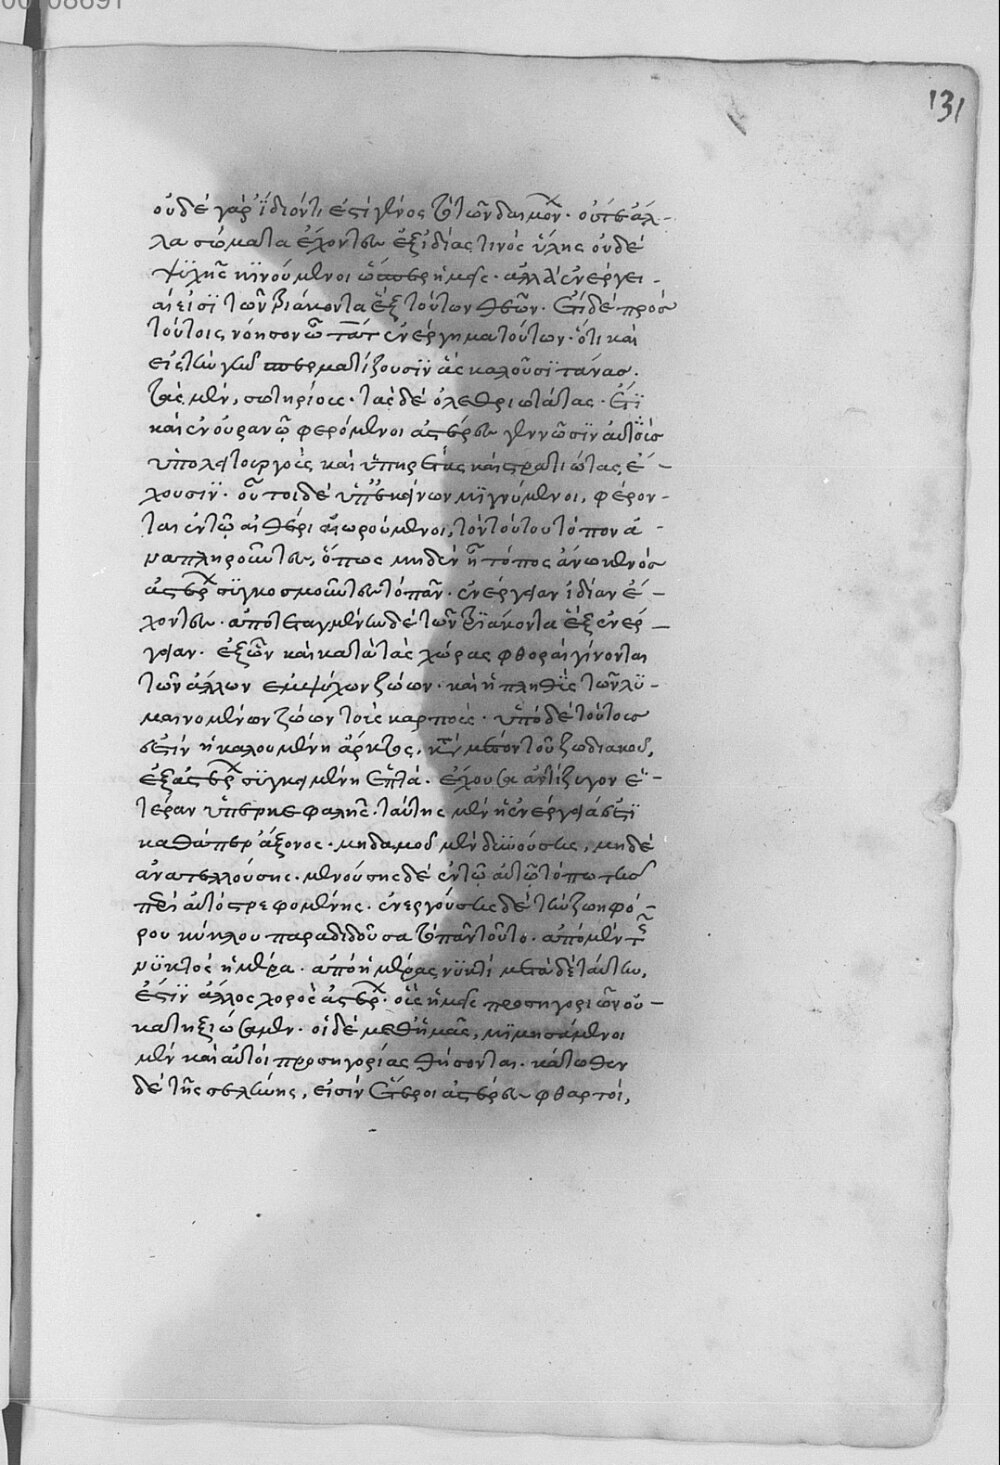 00108691
131
οὐδὲ γὰρ ἴδιόν τι ἐστὶ γένος τὸ τῶν δαιμόνων· οὔτε ἄλ-
λα σώματα ἔχοντες ἐξ ἰδίας τινὸς ὕλης οὐδὲ
ψυχῆς κινούμενοι ὥσπερ ἡμεῖς· ἀλλ' ἐνέργει-
αι εἰσὶ τῶν τριάκοντα ἓξ τούτων θεῶν. ἔτι δὲ πρὸς
τούτοις νόησον ὦ τὰτ ἐνέργημα τούτων· ὅτι καὶ
εἰς τὴν γῆν σπερματίζουσιν ἃς καλοῦσι τάνας.
τὰς μὲν, σωτηρίους· τὰς δὲ ὀλεθριωτάτας· ἔτι
καὶ ἐν οὐρανῷ φερόμενοι ἀστέρες γεννῶσιν αὐτοῖς
ὑπολειτουργοὺς καὶ ὑπηρέτας καὶ στρατιώτας ἔ-
χουσιν· οὗτοι δὲ ὑπ' ἐκείνων μιγνύμενοι, φέρον-
ται ἐν τῷ αἰθέρι αἰωρούμενοι, τὸν τούτου τόπον ἀ-
ναπληροῦντες, ὅπως μηδεὶς ᾖ τόπος ἄνω κενὸς
ἀστέρων συγκοσμοῦντες τὸ πᾶν· ἐνέργειαν ἰδίαν ἔ-
χοντες· ὑποτεταγμένην δὲ τῶν τριάκοντα ἓξ ἐνερ-
γείαν· ἐξ ὧν καὶ κατὰ τὰς χώρας φθοραὶ γίνονται
τῶν ἄλλων ἐμψύχων ζώων· καὶ ἡ πληθὺς τῶν λυ-
μαινομένων ζώων τοὺς καρπούς· ὑπὸ δὲ τούτους
ἐστὶν ἡ καλουμένη ἄρκτος, κατὰ μέσον τοῦ ζωδιακοῦ,
ἐξ ἀστέρων συγκειμένη ἑπτά· ἔχουσα ἀντίζυγον ἑ-
τέραν ὑπὲρ κεφαλῆς· ταύτης μὲν ἡ ἐνέργειά ἐστι
καθάπερ ἄξονος· μηδαμοῦ μὲν δυνούσης, μηδὲ
ἀνατελλούσης· μενούσης δὲ ἐν τῷ αὐτῷ τόπῳ τῆς
περὶ αὐτὸ στρεφομένης· ἐνεργούσης δὲ τὴν ζωηφό-
ρου κύκλου παραδιδοῦσα τὸ πᾶν τοῦτο· ἀπὸ μὲν τῆς
νυκτὸς ἡμέρα· ἀπὸ ἡμέρας νυκτί μετὰ δὲ ταύτην,
ἐστὶν ἄλλος χορὸς ἀστέρων· οἷς ἡμεῖς προσηγοριῶν οὐ-
κατηξιώσαμεν· οἱ δὲ μεθ' ἡμᾶς, μιμησάμενοι
μὲν καὶ αὐτοὶ προσηγορίας θήσονται· κάτωθεν
δὲ τῆς σελήνης, εἰσὶν ἕτεροι ἀστέρες φθαρτοὶ,